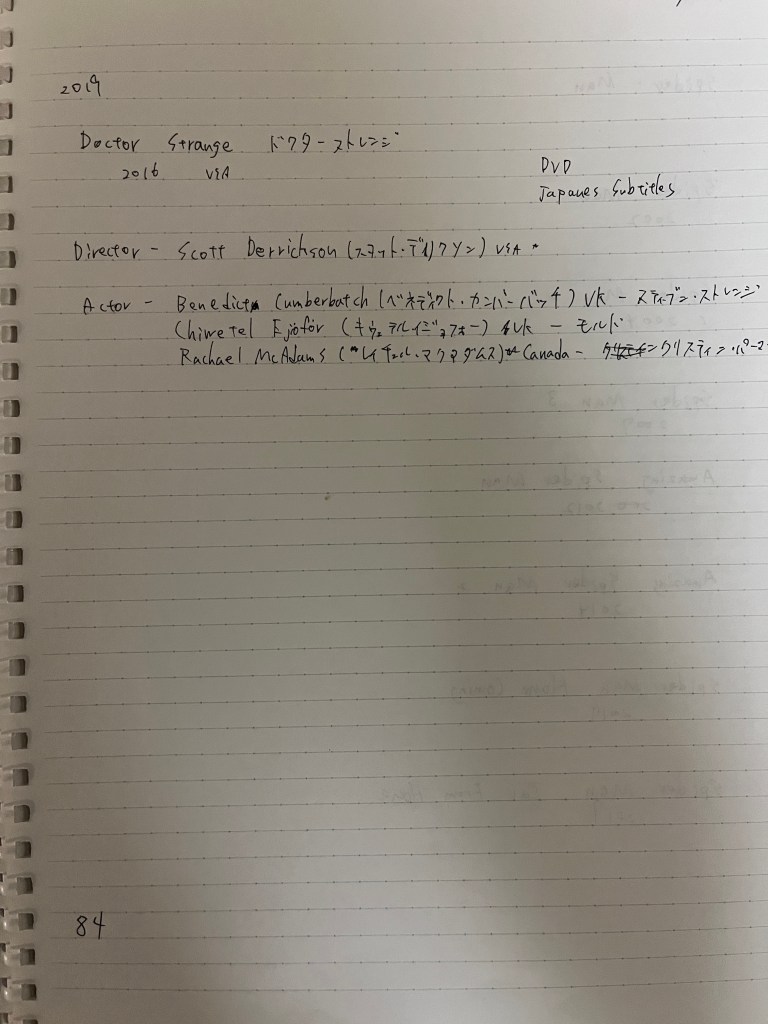 2019
Doctor Strange ドクターストレンジ
2016 USA
DVD
Japanes Subtitles
Director - Scott Derrichson (スコット・デリクソン) USA
Actor - Benedict Cumberbatch (ベネディクト・カンバーバッチ) UK - スティーブン・ストレンジ
Chiwetel Ejiofor (キウェテルイジョフォー) UK - モルド
Rachael McAdams (レイチェル・マクアダムス) Canada - クリスティン・パーマー
84